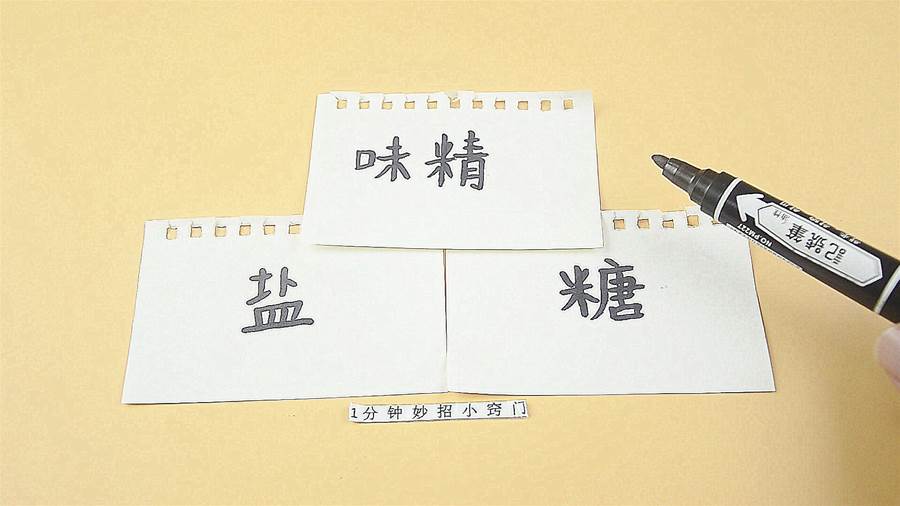 味精
盐
糖
記號筆
油性
NO.PM227
1分钟妙招小窍门